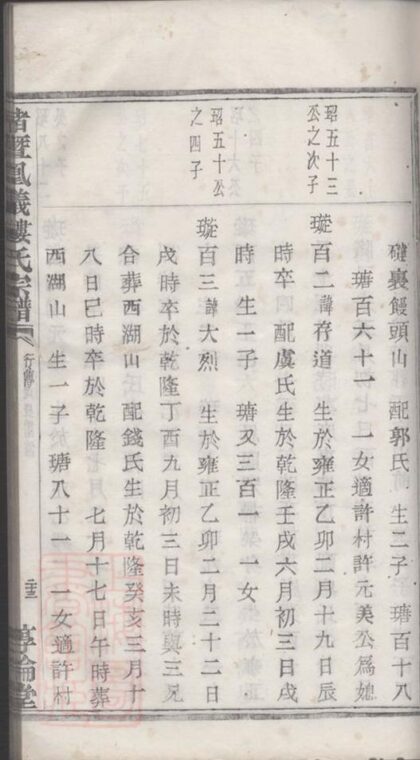 礎裏饅頭山 配郭氏 生二子 瑭百十八
瑭百六十一 一女適許村許元美公爲媳
珺五十三
公之次子
璇百二諱存道 生於雍正乙卯二月十九日辰
時卒 配虞氏生於乾隆壬戌六月初三日戌
時 生一子 瑭又三百一 一女
珺五十公
之四子
璇百三諱大烈 生於雍正乙卯二月二十二日
戌時卒於乾隆丁酉九月初三日未時與三兄
合葬西湖山 配錢氏生於乾隆癸亥三月十
八日巳時卒於乾隆 七月十七日午時葬
西湖山 生一子於瑭八十一 一女適許村
諸暨鳳儀樓氏宗譜
行傳
二十三
享倫堂